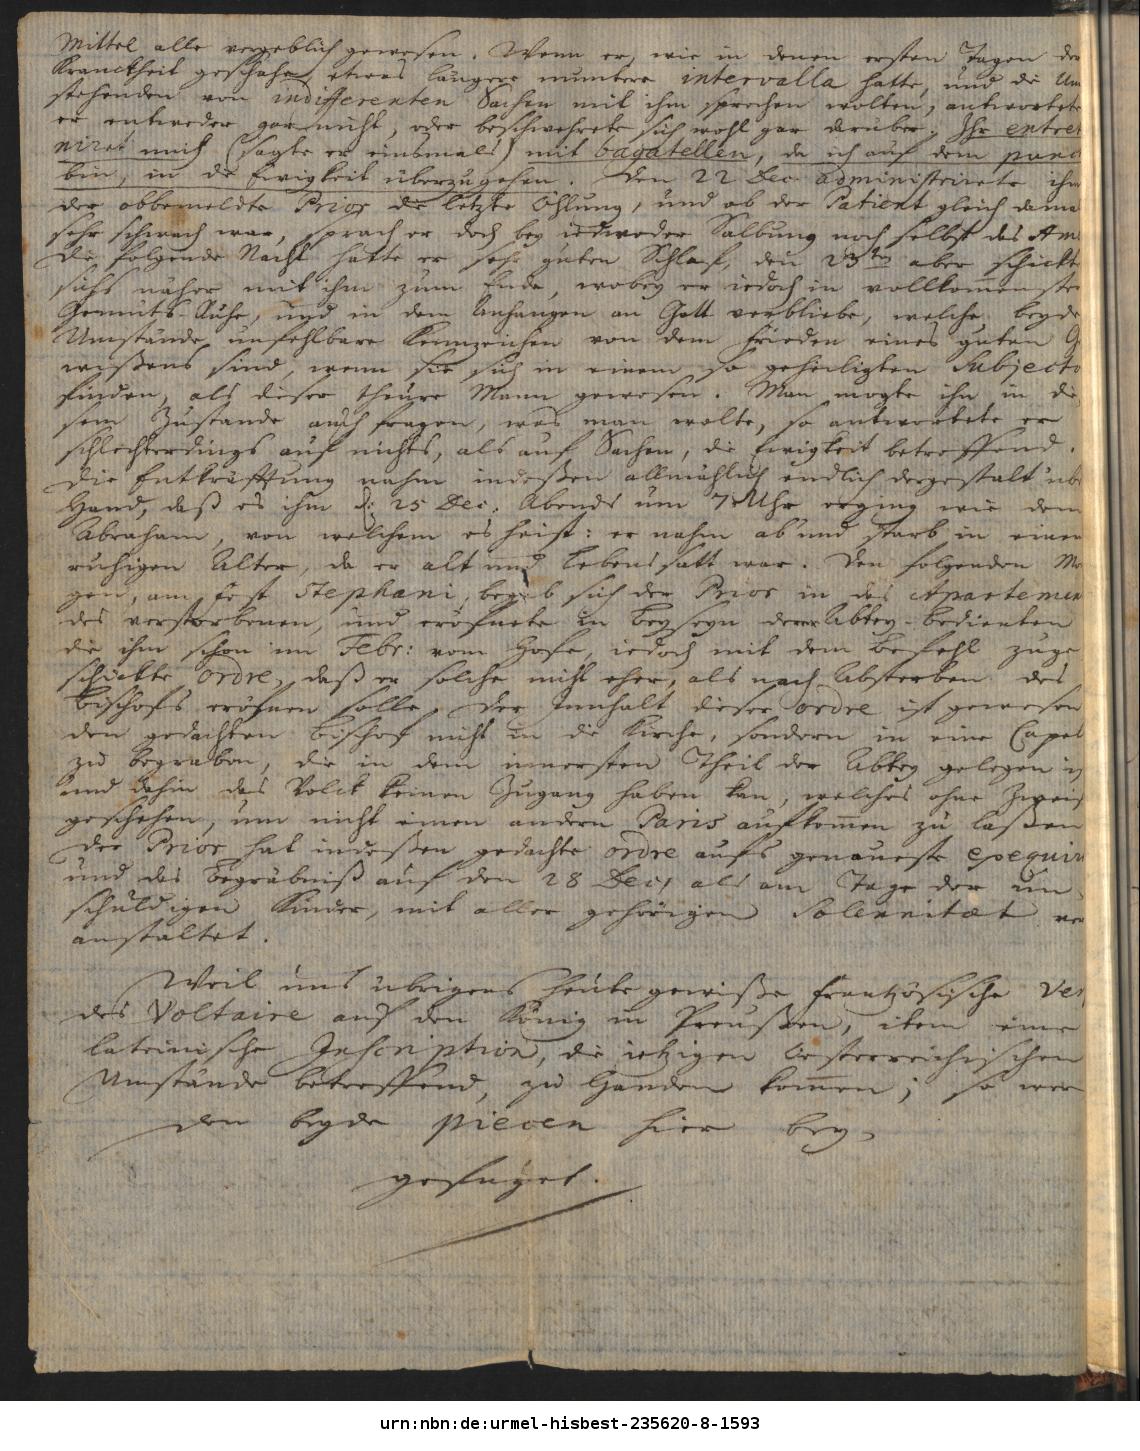 Mittel alle vergeblich gewesen. Wenn er, wie in denen ersten Tagen der
Kranckheit geschahe, etwas längere muntere intervalla hatte, und die Um
stehenden von indifferenten Sachen mit ihm sprechen wolten, antwortete
er entweder gar nicht, oder beschwehrete sich wohl gar darüber: Ihr entret
niret mich (sagte er einsmals) mit bagatellen, da ich auf dem punct
bin, in die Ewigkeit überzugehen. Den 22 Dec. administrirete ihm
der obbemeldte Prior die letzte Öhlung, und ob der Patient gleich dama
sehr schwach war, sprach er doch bey iedweder Salbung noch selbst das Am
Die folgende Nacht hatte er sehr guten Schlaf, den 23ten aber schickte
sichs näher mit ihm zum Ende, wobey er iedoch in vollkommenste
Gemüts-Ruhe, und in dem Anhangen an Gott verbliebe, welche beyde
Umstände unfehlbare Kennzeichen von dem Frieden eines guten G
wissens sind, wenn sie sich in einem so geheiligten Subjecto
finden, als dieser theure Mann gewesen. Man mogte ihn in die
sem Zustande auch fragen, was man wolte, so antwortete er
schlechterdings auf nichts, als auf Sachen, die Ewigkeit betreffend.
Die Entkräfftung nahm indeßen allmählich endlich dergestalt übe
Hand, daß es ihm d. 25 Dec. Abends um 7 Uhr erging wie dem
Abraham, von welchem es heist: er nahm ab und starb in einem
ruhigen Alter, da er alt und Lebens satt war. Den folgenden Mo
gen, am Fest Stephani, begab sich der Prior in das Apartemen
des verstorbenen, und eröfnete in Beyseyn derer Abtey-Bedienten
die ihm schon im Febr: vom Hofe, iedoch mit dem Befehl zuge
schickte Ordre, daß er solche nicht eher, als nach Absterben des
Bischofs eröfnen solle. Der Innhalt dieser Ordre ist gewesen
den gedachten Bischof nicht in die Kirche, sondern in eine Capel
zu begraben, die in dem innersten Theil der Abtey gelegen is
und dahin das Volck keinen Zugang haben kan, welches ohne Zweif
geschehen, um nicht einen andern Paris aufkommen zu laßen
Der Prior hat indeßen gedachte ordre aufs genaueste exequir
und das Begräbniß auf den 28 Dec, als am Tage der un
schuldigen Kinder, mit aller gehörigen Solennitæt ver
anstaltet.
Weil uns übrigens heute gewiße Frantzösische Ver
des Voltaire auf den König in Preußen, item eine
lateinische Inscription, die ietzigen Oesterreichischen
Umstände betreffend, zu Handen kommen; so wer
den beyde piecen hier bey
gefüget.
urn:nbn:de:urmel-hisbest-235620-8-1593